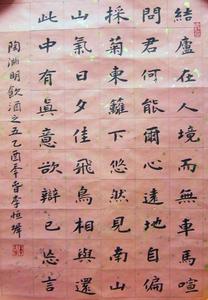 結廬在人境而無車馬喧
問君何能爾心遠地自偏
採菊東籬下悠然見南山
山氣日夕佳飛鳥相與還
此中有眞意欲辯已忘言
陶渊明飲酒之五乙酉年春李恒